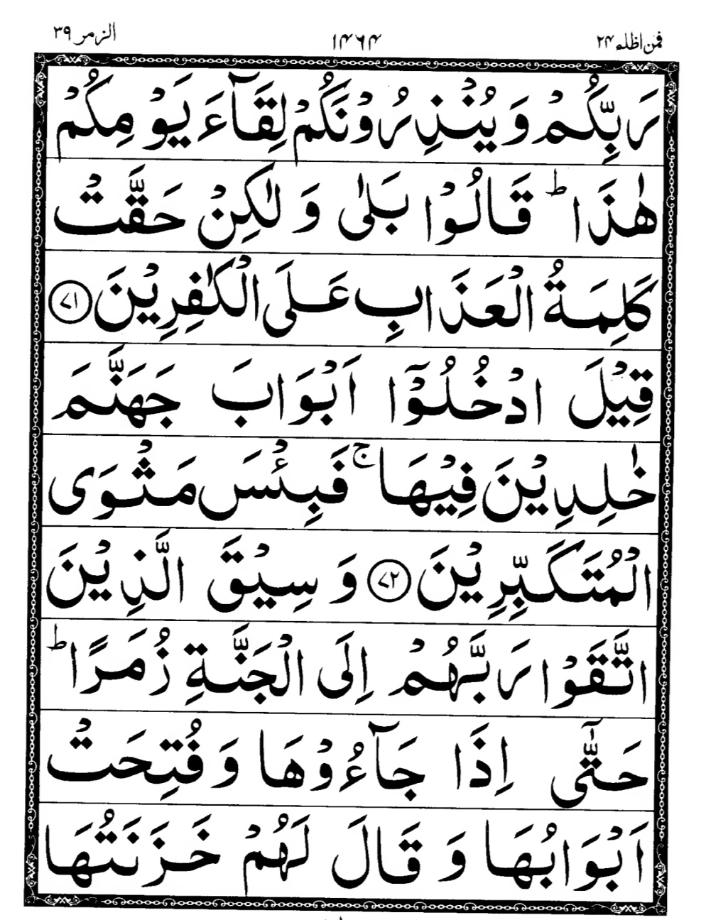 فمن اظلم ۲۴ ۱۴۶۴ الزمر ۳۹
رَبِّكُمْ وَيُنْذِرُوْنَكُمْ لِقَآءَ يَوْمِكُمْ
هٰذَا ؕ قَالُوْا بَلٰى وَ لٰكِنْ حَقَّتْ
كَلِمَةُ الْعَذَابِ عَلَى الْكٰفِرِيْنَ ﴿۷۱﴾
قِيْلَ ادْخُلُوْۤا اَبْوَابَ جَهَنَّمَ
خٰلِدِيْنَ فِيْهَا ۚ فَبِئْسَ مَثْوَى
الْمُتَكَبِّرِيْنَ ﴿۷۲﴾ وَ سِيْقَ الَّذِيْنَ
اتَّقَوْا رَبَّهُمْ اِلَى الْجَنَّةِ زُمَرًا ؕ
حَتّٰۤى اِذَا جَآءُوْهَا وَ فُتِحَتْ
اَبْوَابُهَا وَ قَالَ لَهُمْ خَزَنَتُهَا